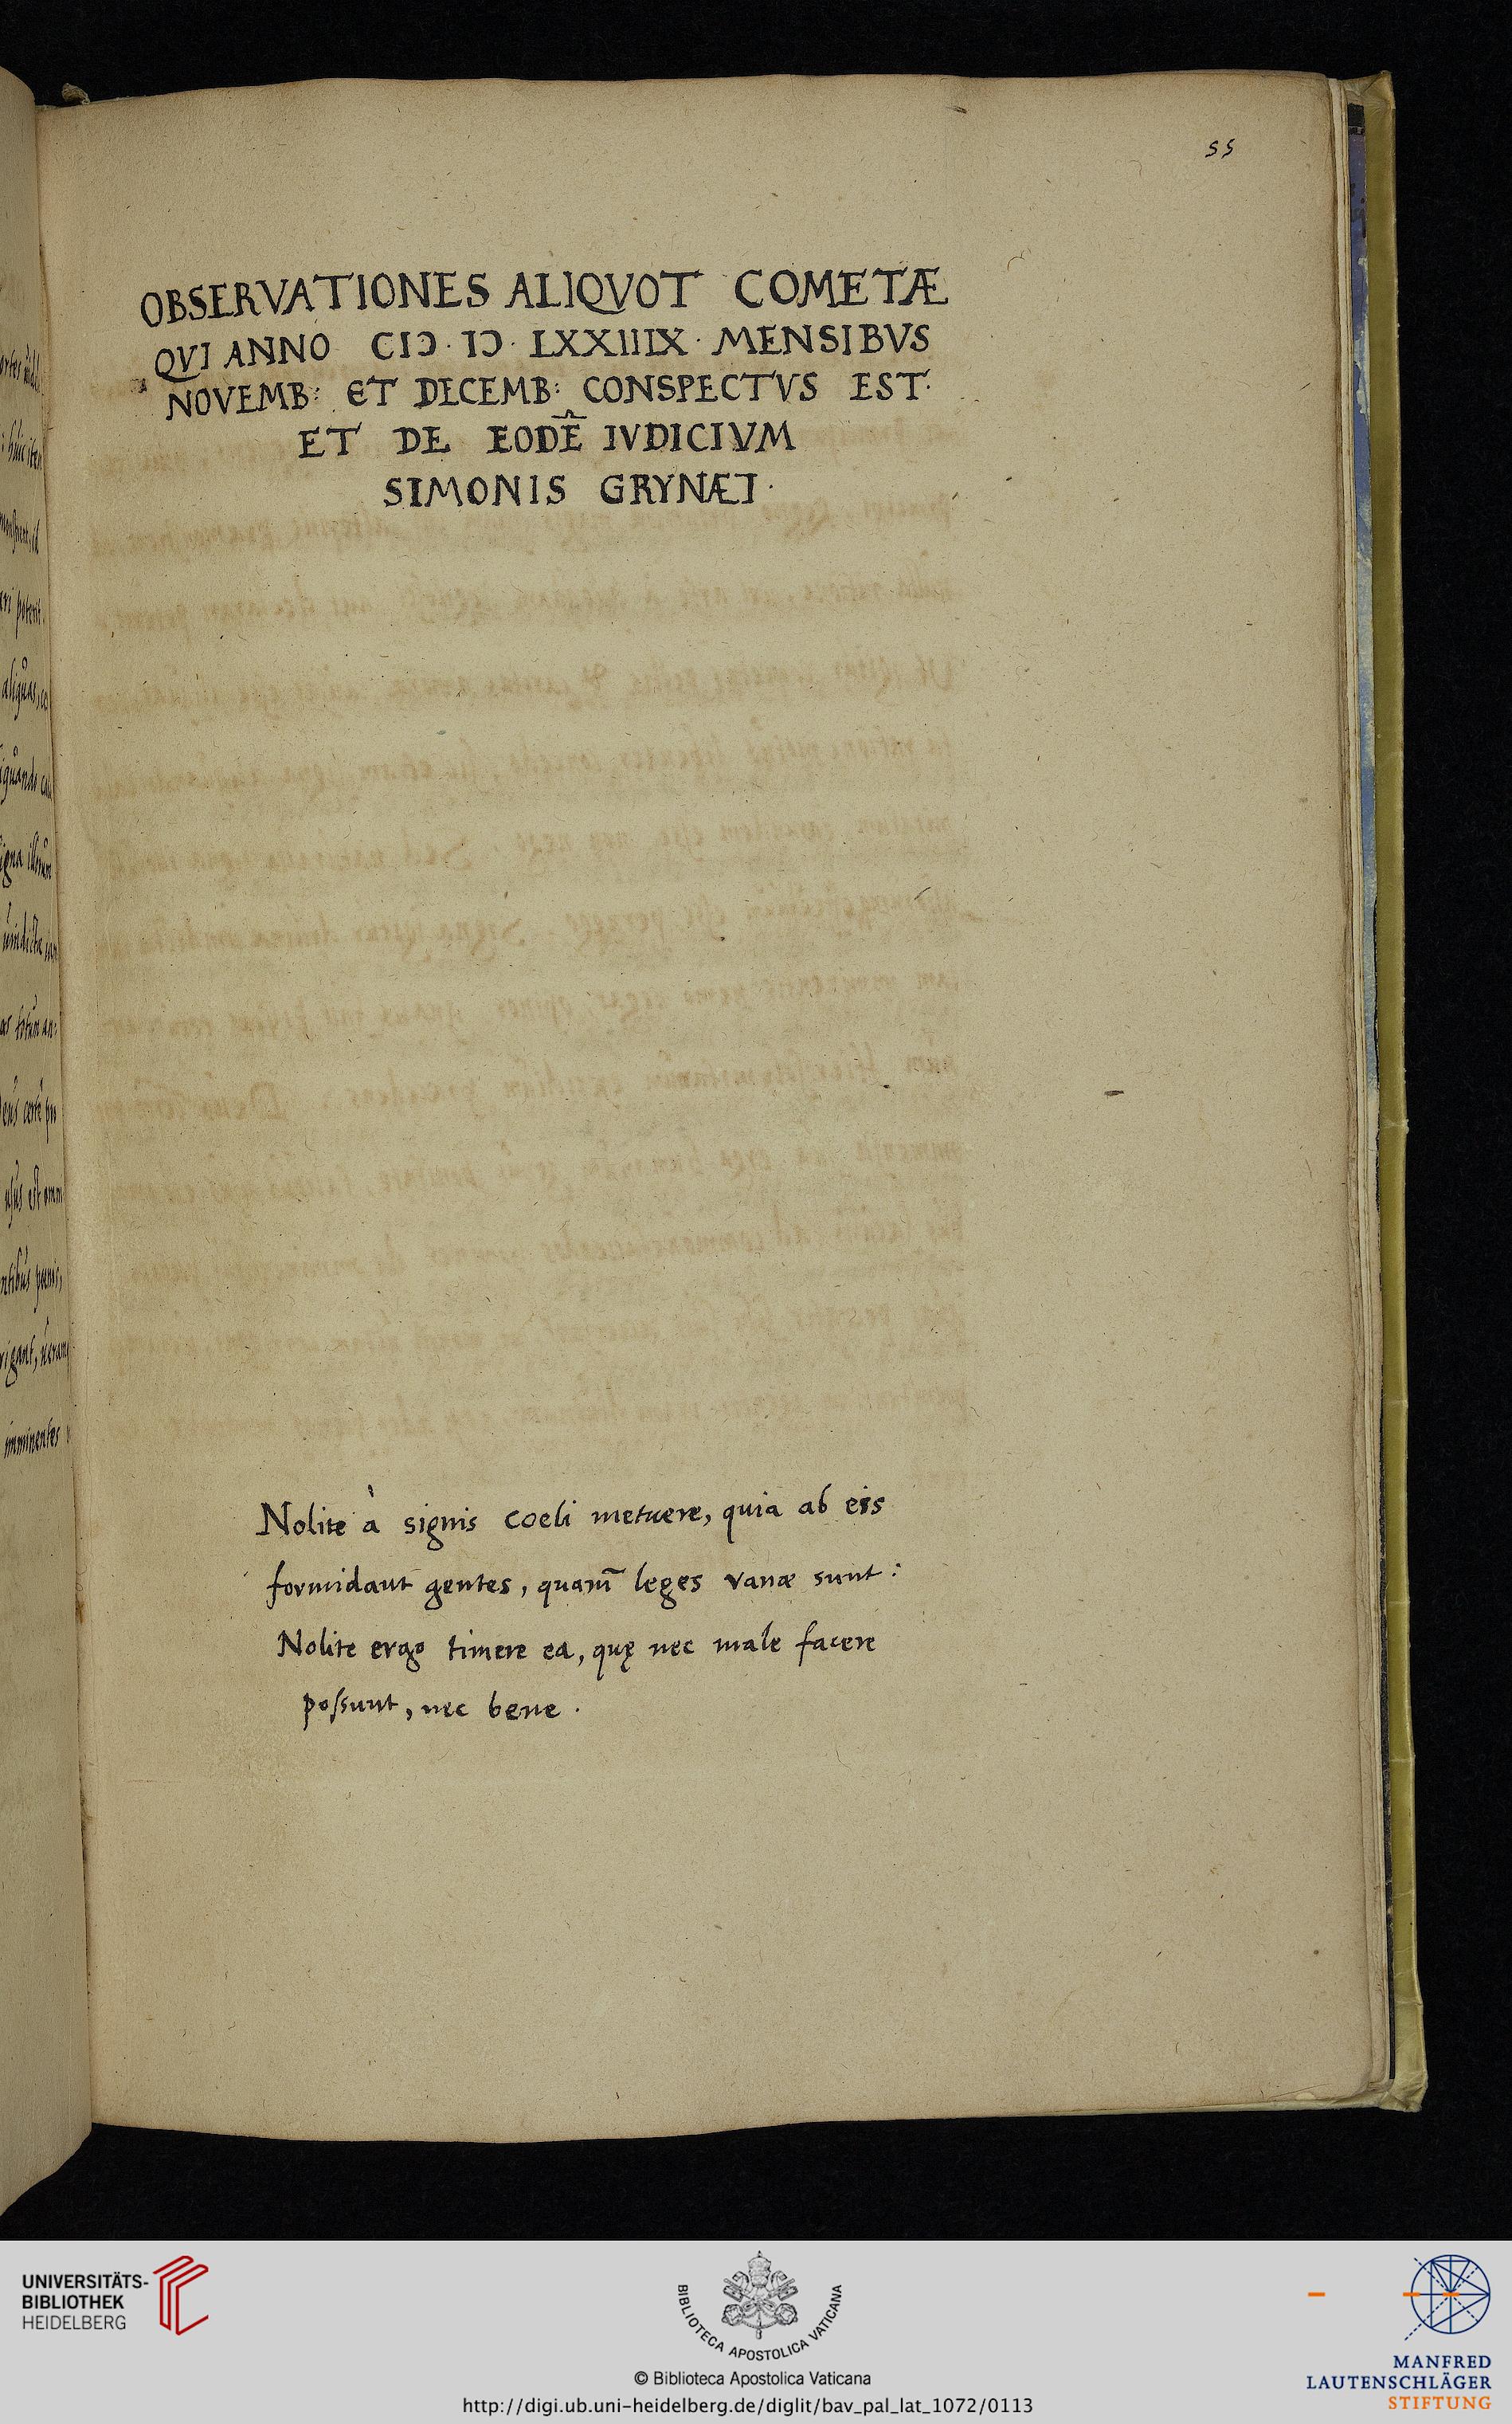 55
OBSERVATIONES ALIQVOT COMETÆ
QVI ANNO CIƆ · IƆ · LXXIIIX · MENSIBVS
NOVEMB: ET DECEMB: CONSPECTVS EST·
ET DE EODĒ IVDICIVM
SIMONIS GRYNÆI·
Nolite à signis coeli metuere, quia ab eis
formidant gentes, quarū leges vanæ sunt:
Nolite ergo timere ea, quę nec male facere
possunt, nec bene.
imminentes
UNIVERSITÄTS-
BIBLIOTHEK
HEIDELBERG
BIBLIOTECA APOSTOLICA VATICANA
© Biblioteca Apostolica Vaticana
http://digi.ub.uni-heidelberg.de/diglit/bav_pal_lat_1072/0113
MANFRED
LAUTENSCHLÄGER
STIFTUNG